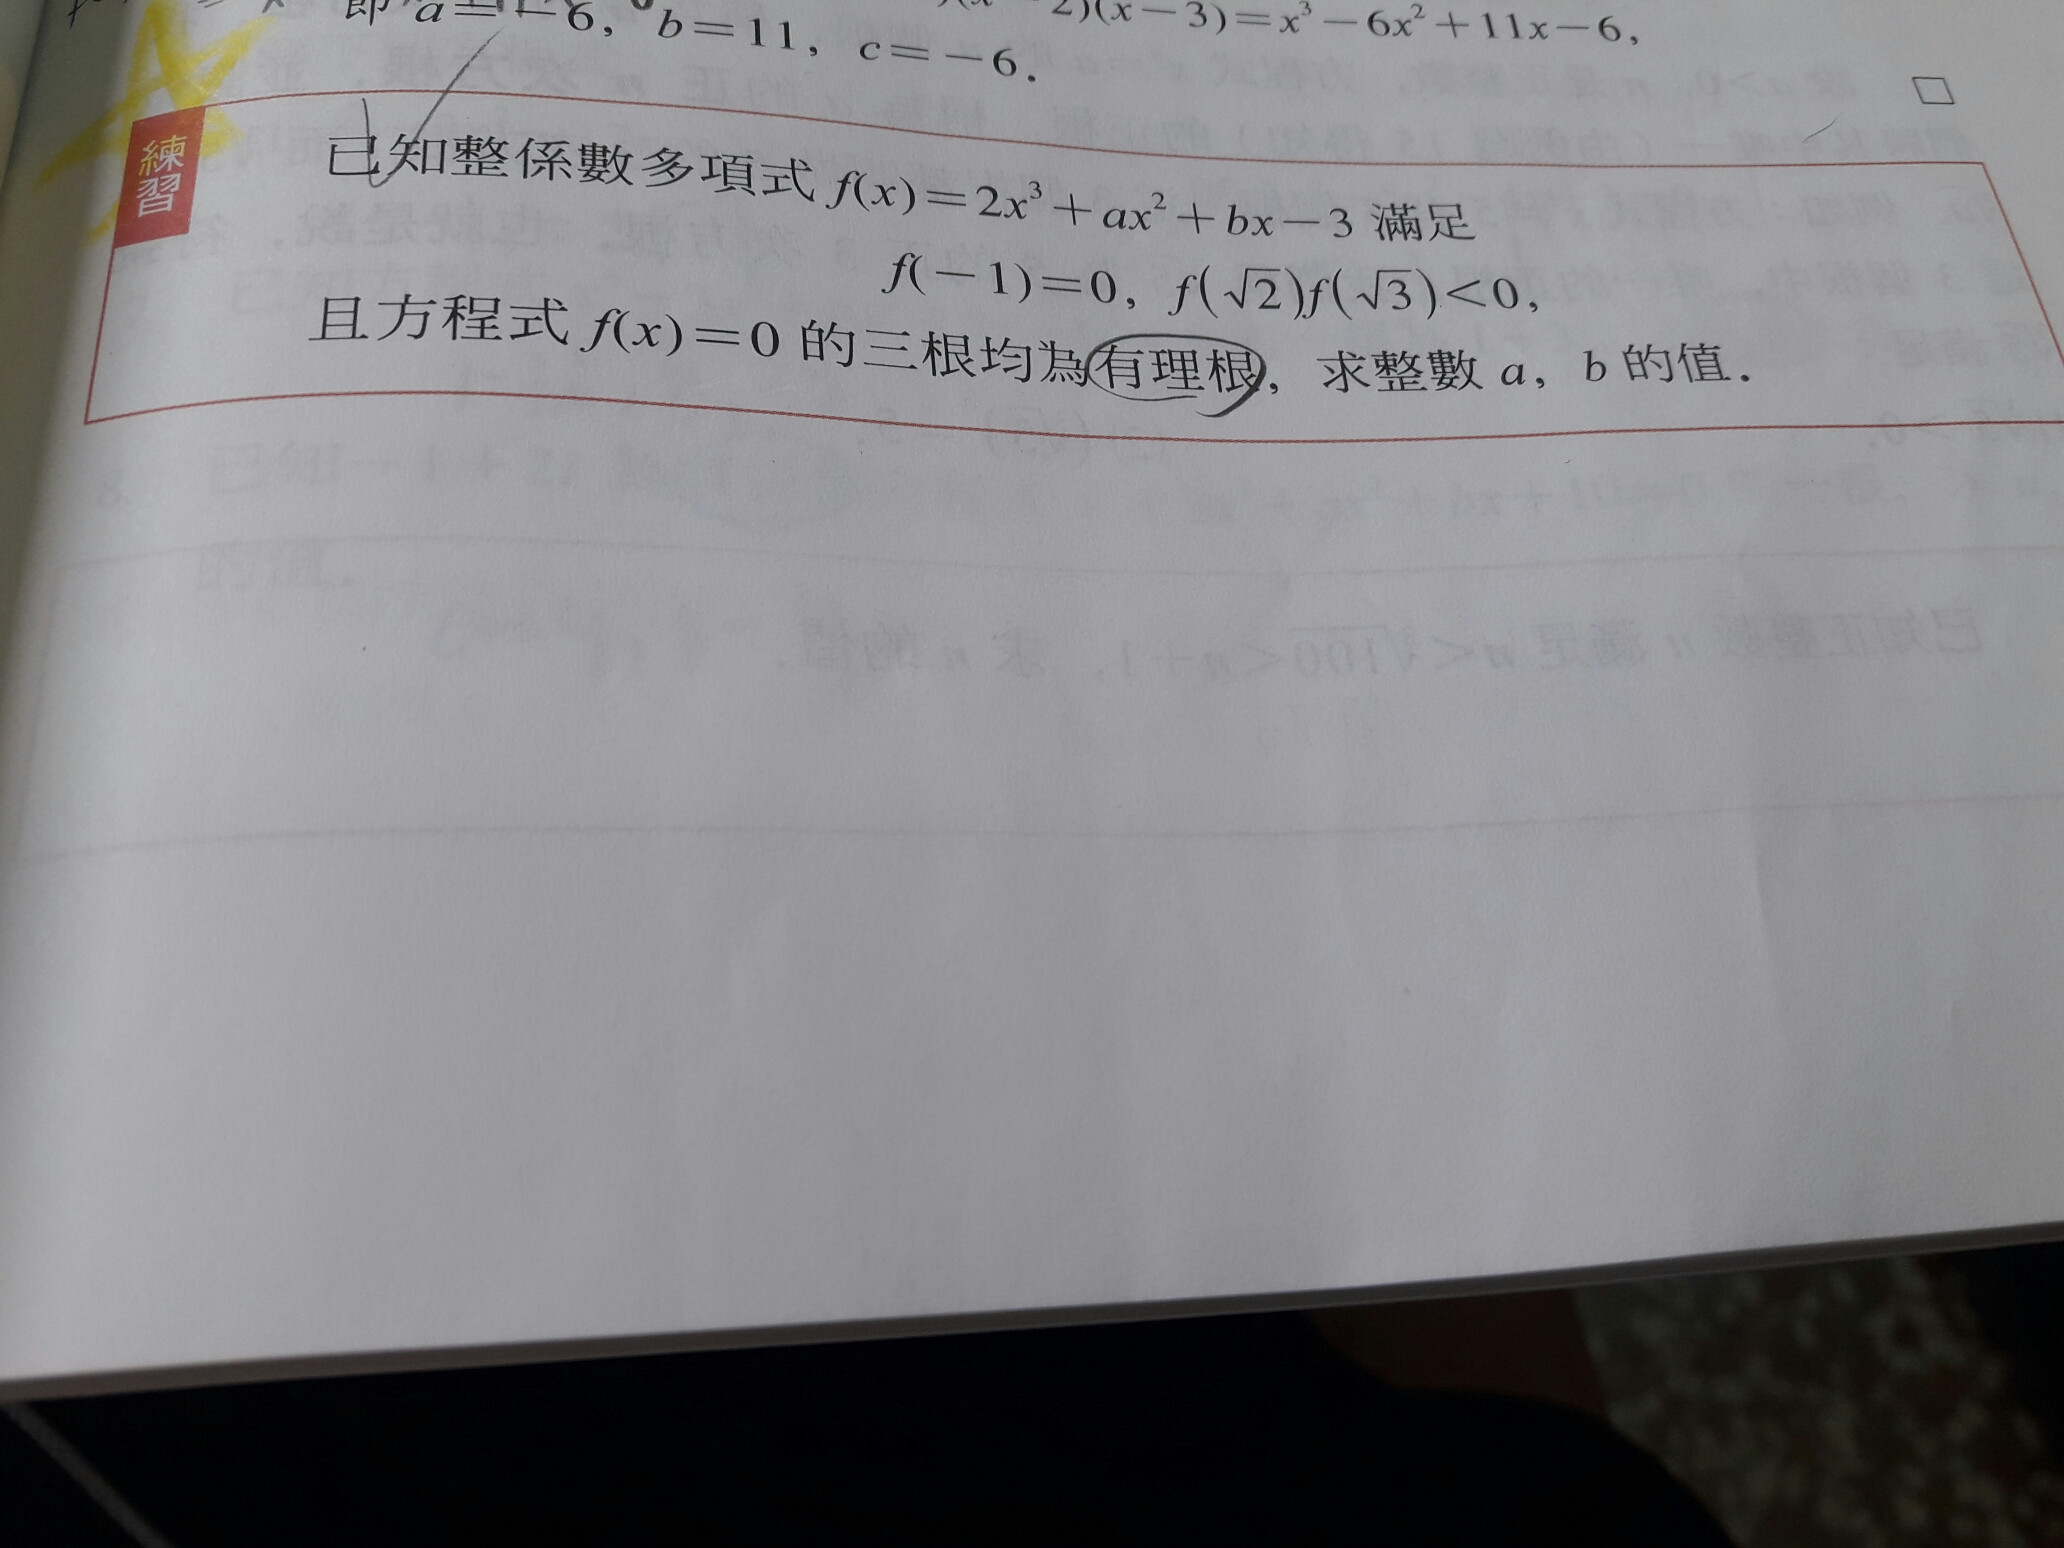 即 a=-6, b=11, c=-6.
2)(x-3)=x³-6x²+11x-6,
練習
已知整係數多項式 f(x)=2x³+ax²+bx-3 滿足
f(-1)=0, f(√2)f(√3)<0,
且方程式 f(x)=0 的三根均為有理根, 求整數 a, b 的值.